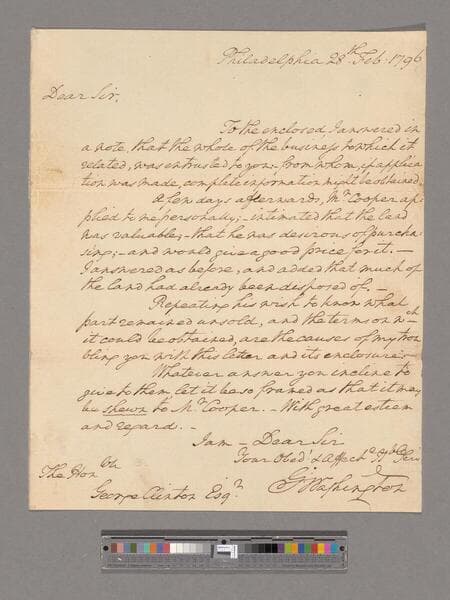 Philadelphia 28th Feb. 1796
Dear Sir,
To the enclosed I answered in
a note, that the whole of the business to which it
related, was entrusted to you;- from whom, if applica
tion was made, complete information might be obtained.
A few days afterwards, Mr Cooper ap-
plied to me personally;- intimated that the land
was valuable;- that he was desirous of purcha
sing;- and would give a good price for it.-
I answered as before, and added that much of
the land had already been disposed of.-
Repeating his wish to know what
part remained unsold, and the terms on wch
it could be obtained, are the causes of my trou
bling you with this letter and its enclosure.-
Whatever answer you incline to
give to them, let it be so framed as that it may
be shewn to Mr Cooper.- With great esteem
and regard.-
I am - Dear Sir
Your Obedt & Affecte Hble Ser
Go: Washington
The Honble
George Clinton Esqr